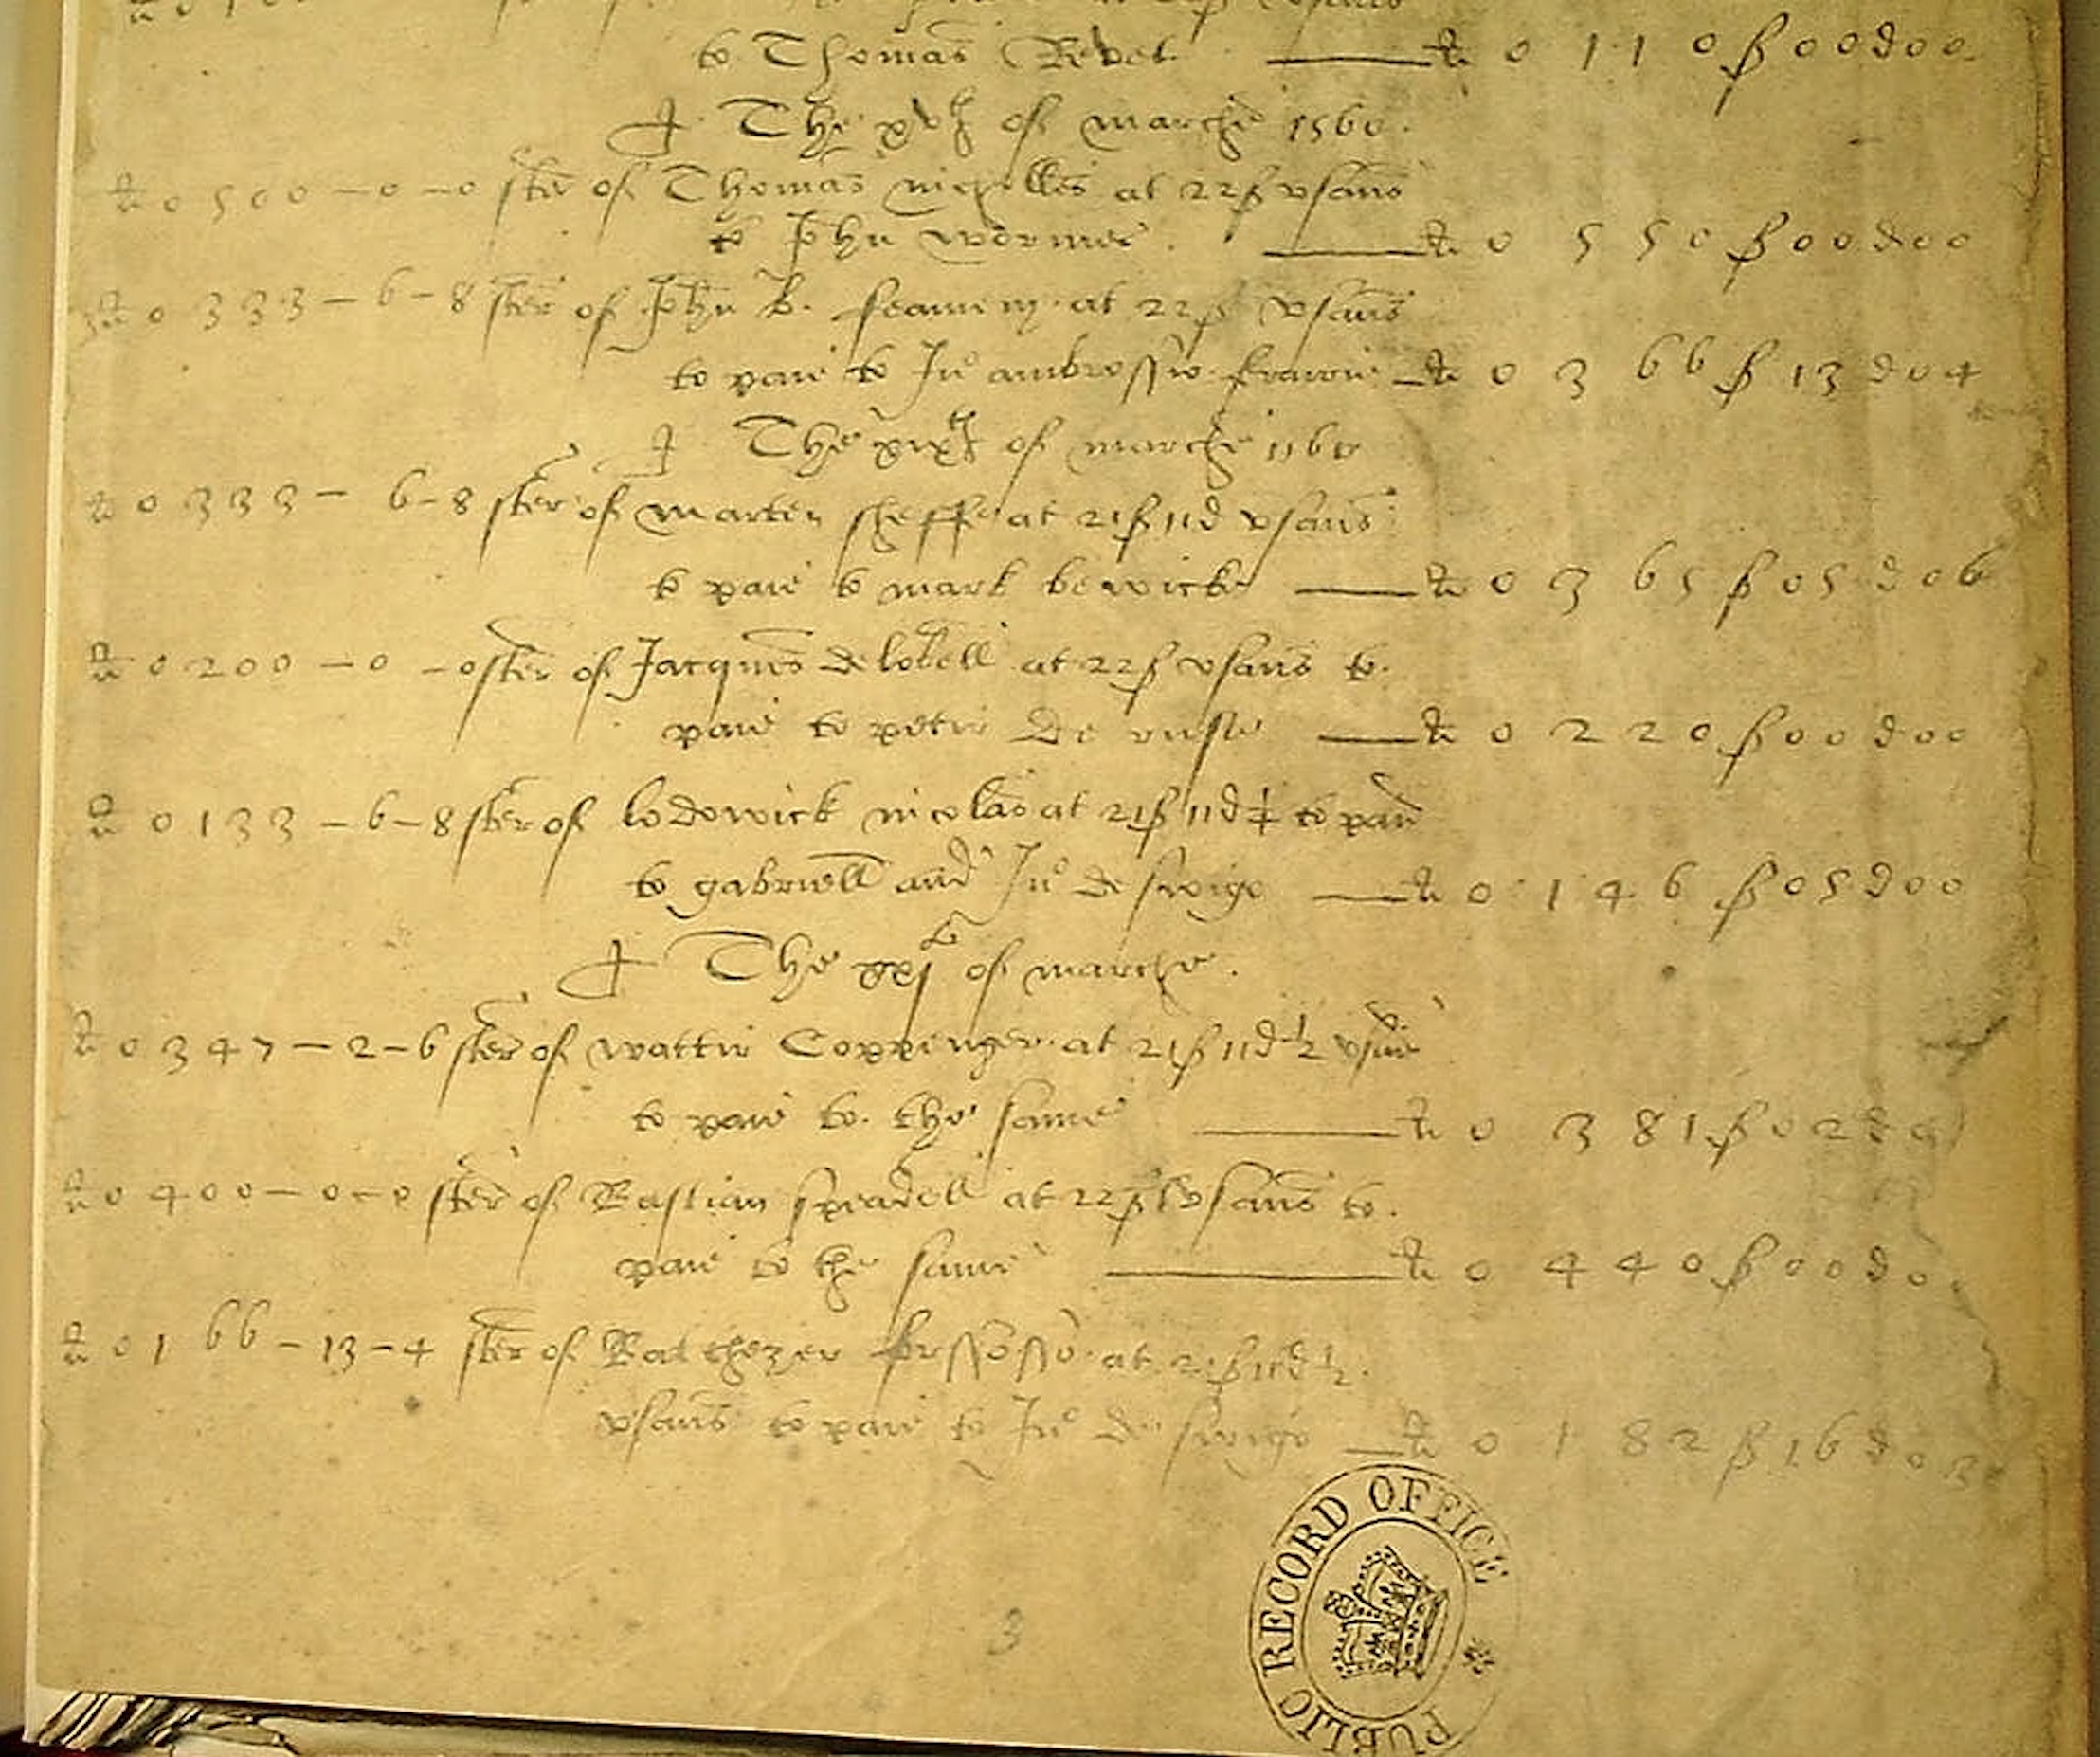 to Thomas Revet ———— li 0 110 ß 00 d 00
The xvth of marche 1560.
li 0500—0—0 ster of Thomas nicolles at 22ß vsans
to John wormer. ———— li 0 550 ß 00 d 00
li 0333—6—8 ster of John b. at 22ß vsans
to paie to Jno ambrossio — li 0 366 ß 13 d 04
The xixth of marche 1560
li 0333—6—8 ster of marten sheffe at 21ß 11d vsans
to paie to mark bewick ——— li 0 365 ß 05 d 06
li 0200—0—0 ster of Jacques delobell at 22ß vsans to.
paie to peter de ——— li 0 220 ß 00 d 00
li 0133—6—8 ster of lodowick nicolas at 21ß 11d ¼ to paie
to gabriell and Jno de —— li 0 146 ß 05 d 00
The xxj of marche.
li 0347—2—6 ster of watter Coppenger at 21ß 11d ½
to paie to. the same ———— li 0 381 ß 02 d
li 0400—0—0 ster of Bastian at 22ß vsans to.
paie to the same ———— li 0 440 ß 00 d 0
li 0166—13—4 ster of Balthezer at 21ß 11d ½.
vsans to paie to Jno de — li 0 182 ß 16 d 03
3
PUBLIC RECORD OFFICE